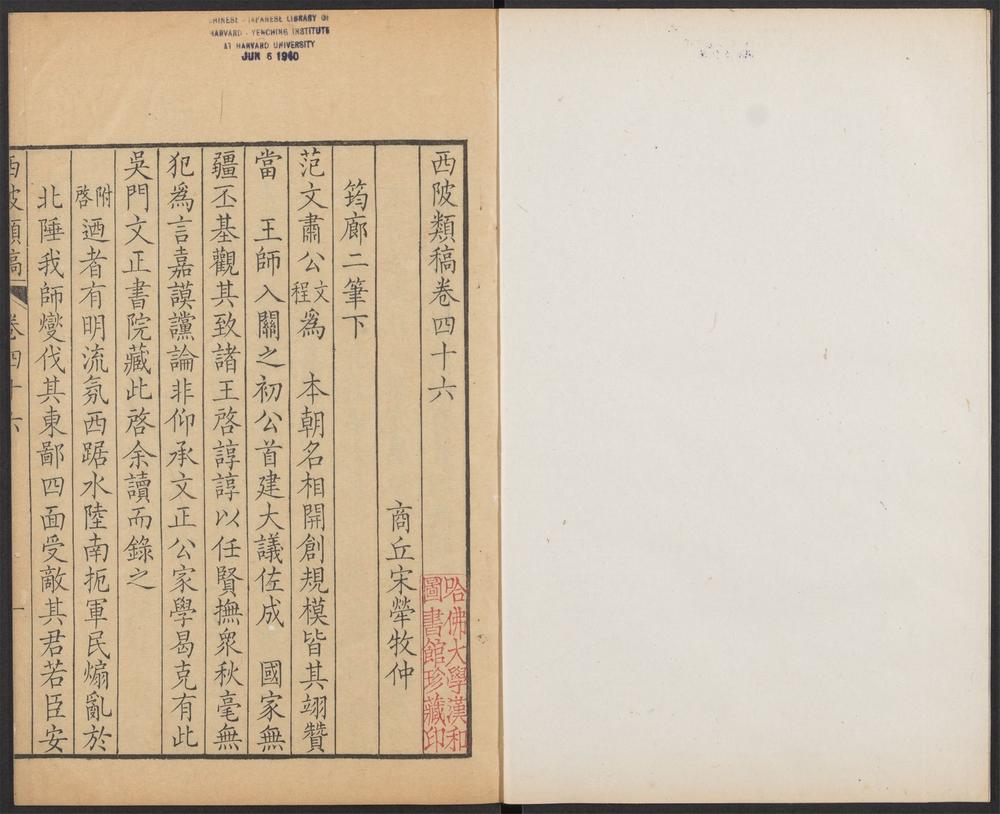 CHINESE - JAPANESE LIBRARY OF
HARVARD - YENCHING INSTITUTE
AT HARVARD UNIVERSITY
JUN 6 1940
西陂類稿卷四十六
商丘宋犖牧仲
筠廊二筆下
范文肅公文程爲　本朝名相開創規模皆其翊贊
當　王師入關之初公首建大議佐成　國家無
疆丕基觀其致諸王啓諄諄以任賢撫衆秋毫無
犯爲言嘉謨讜論非仰承文正公家學曷克有此
吳門文正書院藏此啓余讀而錄之
附啓迺者有明流氛西踞水陸南扼軍民煽亂於
北陲我師燮伐其東鄙四面受敵其君若臣安
西陂類稿　卷四十六　一
哈佛大學漢和
圖書館珍藏印